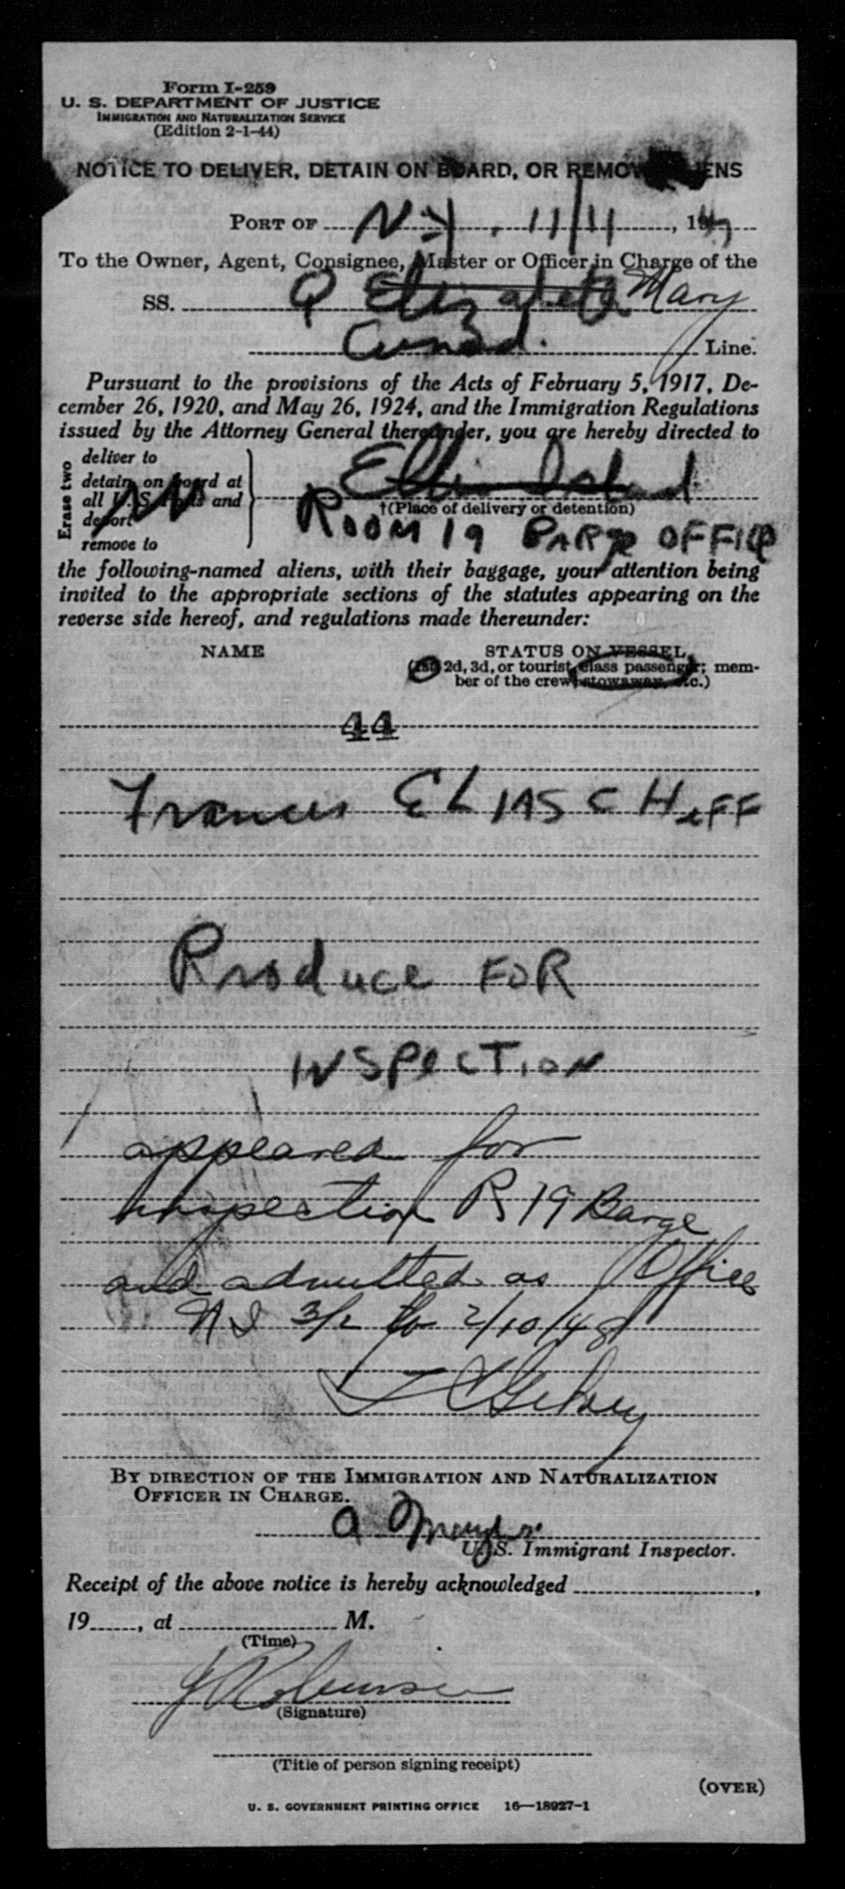 Form I-259
U. S. DEPARTMENT OF JUSTICE
IMMIGRATION AND NATURALIZATION SERVICE
(Edition 2-1-44)
NOTICE TO DELIVER, DETAIN ON BOARD, OR REMOVE ALIENS
PORT OF N.Y., 11/11, 1947
To the Owner, Agent, Consignee, Master or Officer in Charge of the
SS. Q Elizabeth Mary
Cunard. Line.
Pursuant to the provisions of the Acts of February 5, 1917, De-
cember 26, 1920, and May 26, 1924, and the Immigration Regulations
issued by the Attorney General thereunder, you are hereby directed to
Erase two
deliver to
detain on board at
all U. S. Ports and
deport
remove to
Ellis Island
†(Place of delivery or detention)
ROOM 19 BARge OFFICe
the following-named aliens, with their baggage, your attention being
invited to the appropriate sections of the statutes appearing on the
reverse side hereof, and regulations made thereunder:
NAME STATUS ON VESSEL
(1st, 2d, 3d, or tourist class passenger; mem-
ber of the crew, stowaway, etc.)
44
Frances ELIASCHeFF
Produce FOR
INSPeCTION
appeared for
inspection R 19 Barge
Office
and admitted as
3/2 to 2/10/48
BY DIRECTION OF THE IMMIGRATION AND NATURALIZATION
OFFICER IN CHARGE.
U. S. Immigrant Inspector.
Receipt of the above notice is hereby acknowledged ,
19 , at M.
(Time)
J Robinson
(Signature)
(Title of person signing receipt)
(OVER)
U. S. GOVERNMENT PRINTING OFFICE 16—18927-1